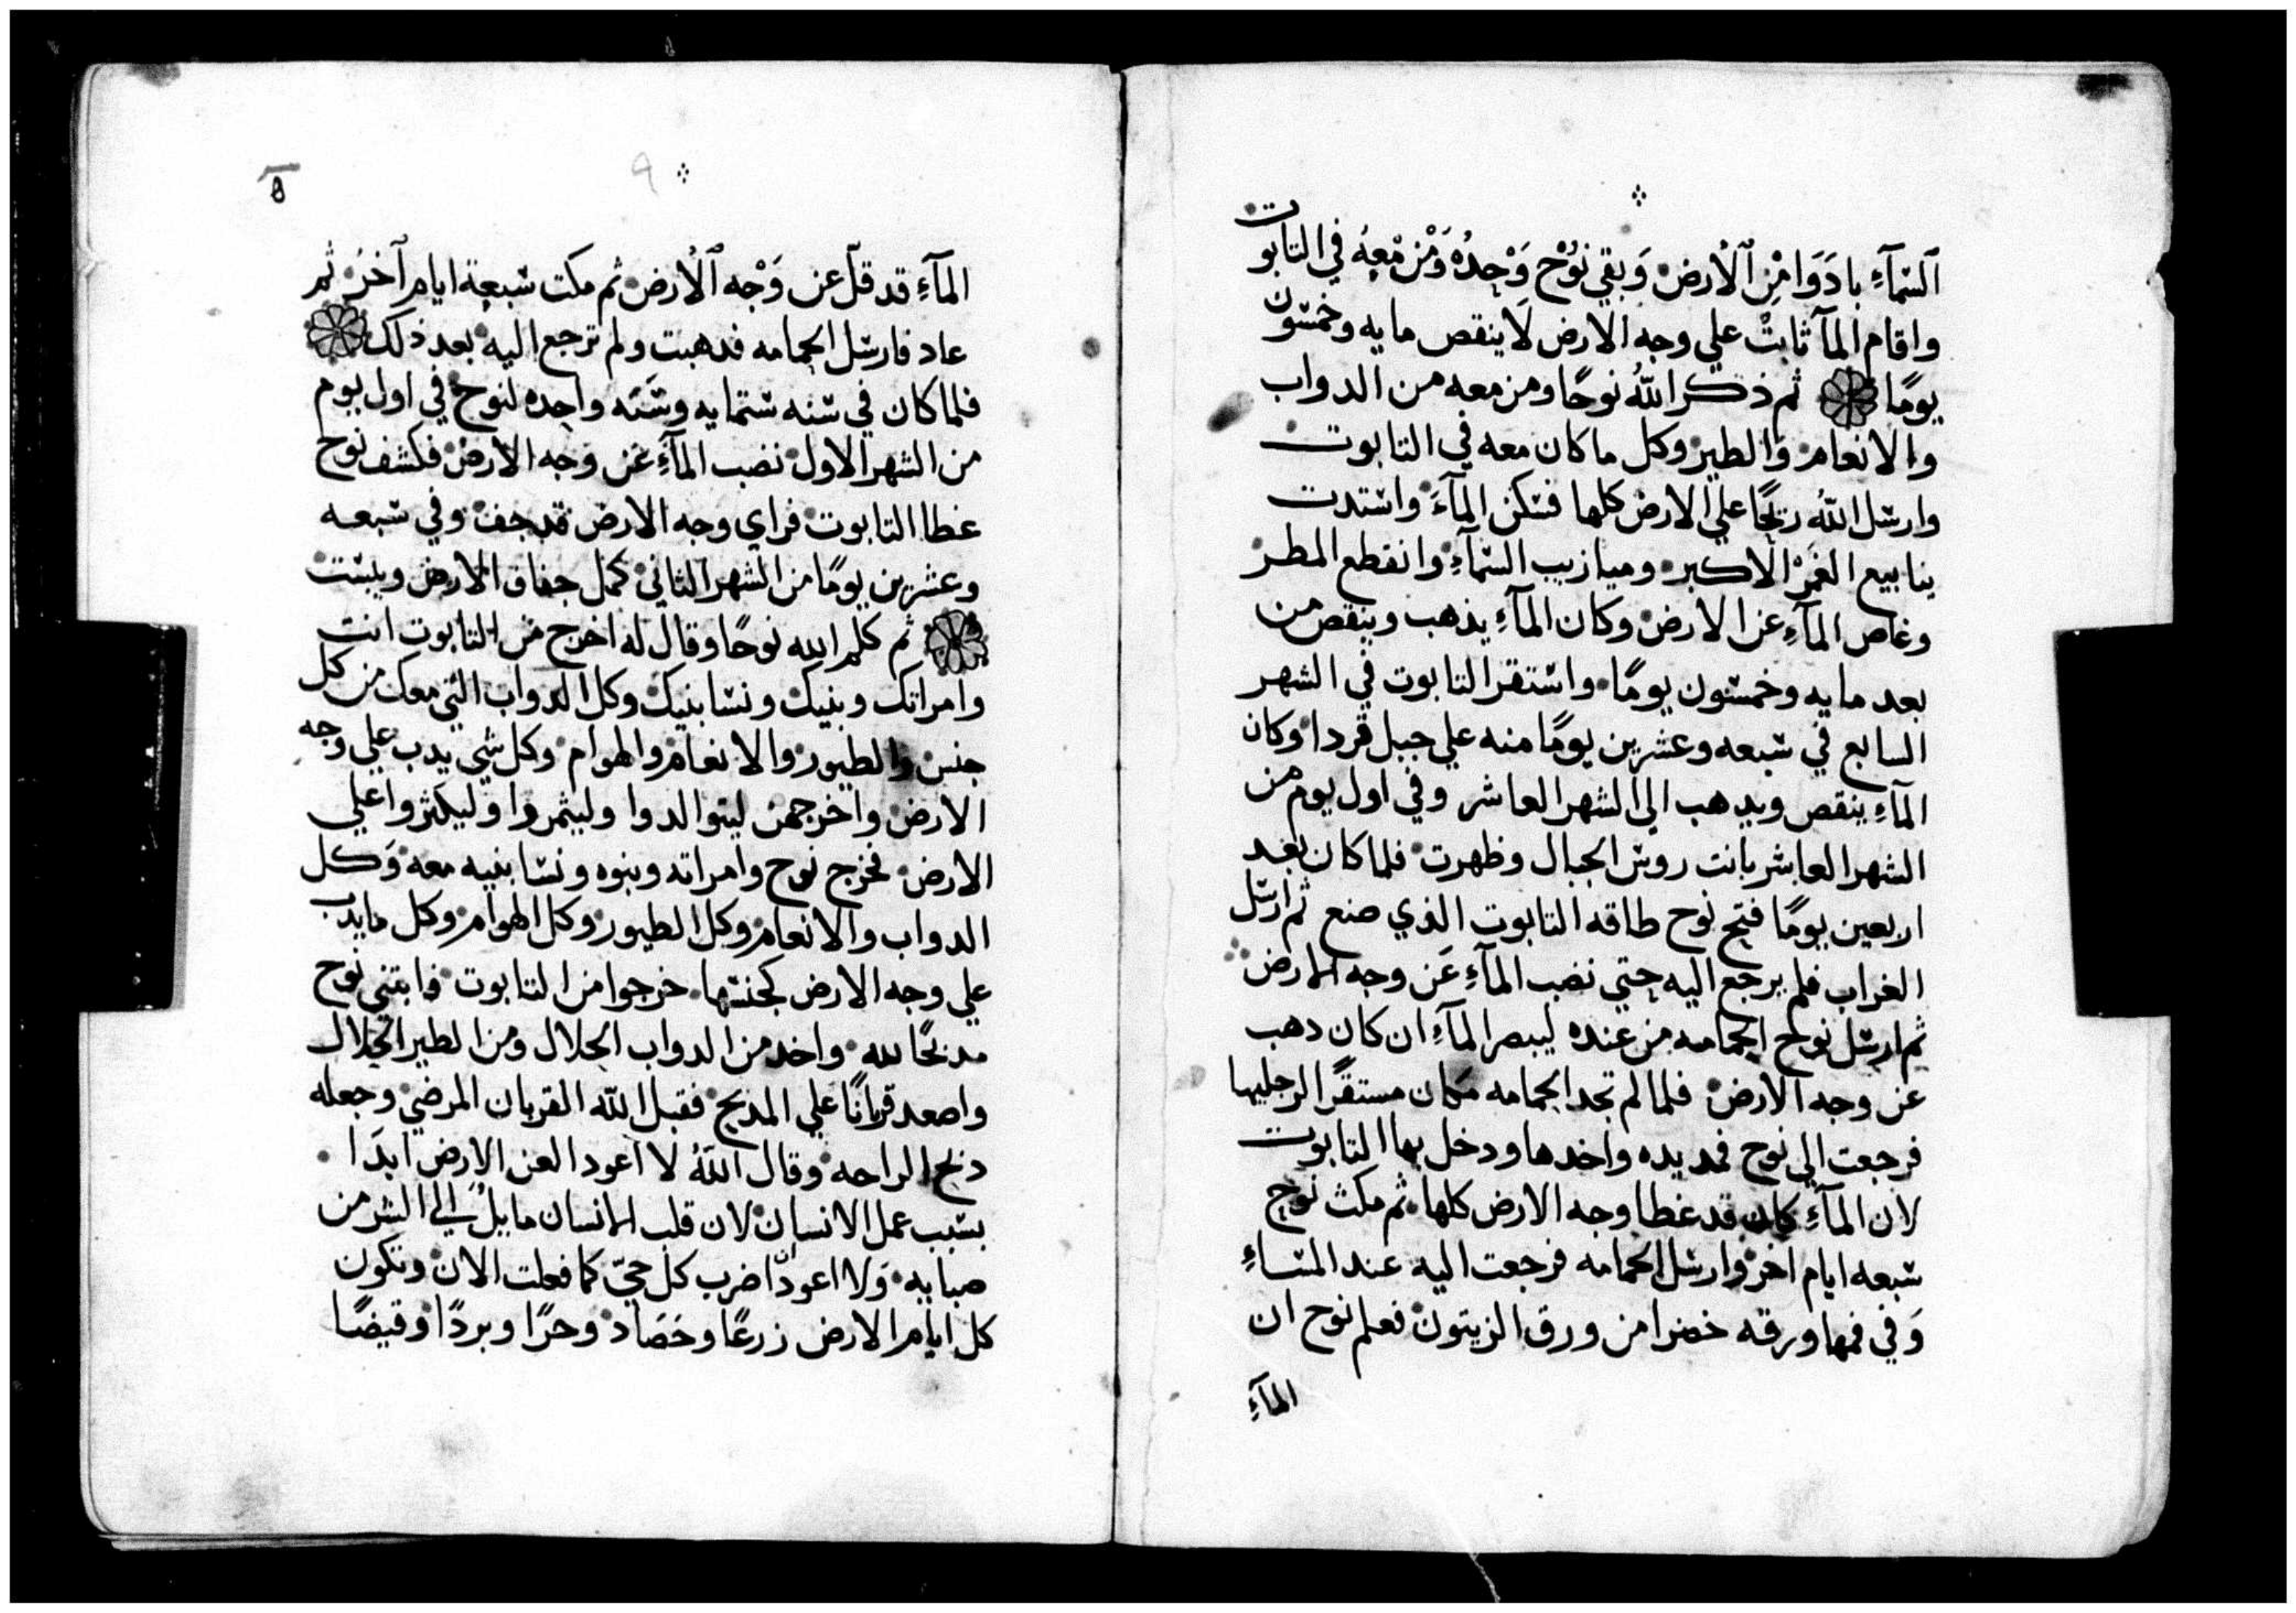 اَلسّمآءِ بادَوَا مْنِ اَلْأرض وَبقي نوُحْ وَحِدُهْ وَمْنْ مْعهُ في التابوت
واقام المآ ثابتْ علي وجه الارض لَا ينقص مايه وخمسون
يومًا ثم ذكر اللهُ نوحًا ومن معه من الدواب
والانعام والطير وكل ما كان معه في التابوت
وارسل اللهُ ريحًا علي الارض كلها فسكن المآءَ واستدت
ينابيع الغَمْرْ الاكبر وميازيب السّمآءِ وانقطع المطر
وغاص المآءِ عن الارض وكان المآءِ يذهب وينقص من
بعد مايه وخمسون يومًا واستقر التابوت في الشهر
السابع في سبعه وعشرين يومًا منه علي جبل قردا وكان
المآءِ ينقص ويدهب الي الشهر العاشر وفي اول يوم من
الشهر العاشر بانت روس الجبال وظهرت فلما كان بعد
اربعين يومًا فتح نوح طاقه التابوت الذي صنع ثم ارسل
الغراب فلم يرجع اليه حتي نضب المآءِ عَن وجه الارض
ثم ارسل نوح الحمامه من عنده ليبصر المآءِ ان كان دهب
عن وجه الارض فلما لم تجد الحمامه مَكان مستقرًا لرجليها
فرجعت الي نوح فمد يده واخدها ودخل بها التابوت
لان المآءِ كان قد غطا وجه الارض كلها ثم مكث نوح
سبعه ايام اخر وارسل الحمامه فرجعت اليه عند المسَاءِ
وَفي فمها ورقه خضرا من ورق الزيتون فعلم نوح ان
المآءِ
٩
المآءِ قد قلّ عن وَجْه اَلْأرض ثم مكت سَبعة ايام آخَرُ ثم
عاد فارسل الحمامه فدهبت ولم ترجع اليه بعد ذلك
فلما كان في سنه ستمايه وسَنَه واحِده لنوح في اول يوم
من الشهر الاول نضب المآءِ عَن وَجه الارض فكشف نوح
غطا التابوت فراي وجه الارض قد جف وفي سبعه
وعشرين يومًا من الشهر الثاني كمل جفاف الارض ويبست
ثم كلم الله نوحًا وقال له اخرج من التابوت انت
وامراتك وبنيك ونسا بنيك وكل الدواب التي معك من كل
جنس والطيور والانعام والهوام وكل شي يدب علي وجه
الارض واخرجهن ليتوالدوا وليثمروا وليكثروا علي
الارض فخرج نوح وامراته وبنوه ونسا بنيه معه وَكل
الدواب والانعام وكل الطيور وكل الهوام وكل ما يدب
علي وجه الارض كجنسها خرجوا من التابوت فابتني نوح
مدبحًا لله واخد من الدواب الحلال ومن الطير الحلال
واصعد قربانًا علي المدبح فقبل الله القربان المرضي وجعله
دبح الراحه وقال اللهُ لا اعود العن الارض ابدَا
بسبب عمل الانسان لان قلب الانسان مايلْ الي الشر من
صبايه وَلا اعود اضرب كل حيّ كما فعلت الان وتكون
كل ايام الارض زرعًا وحَصَاد وحرًا وبردًا وقيضًا